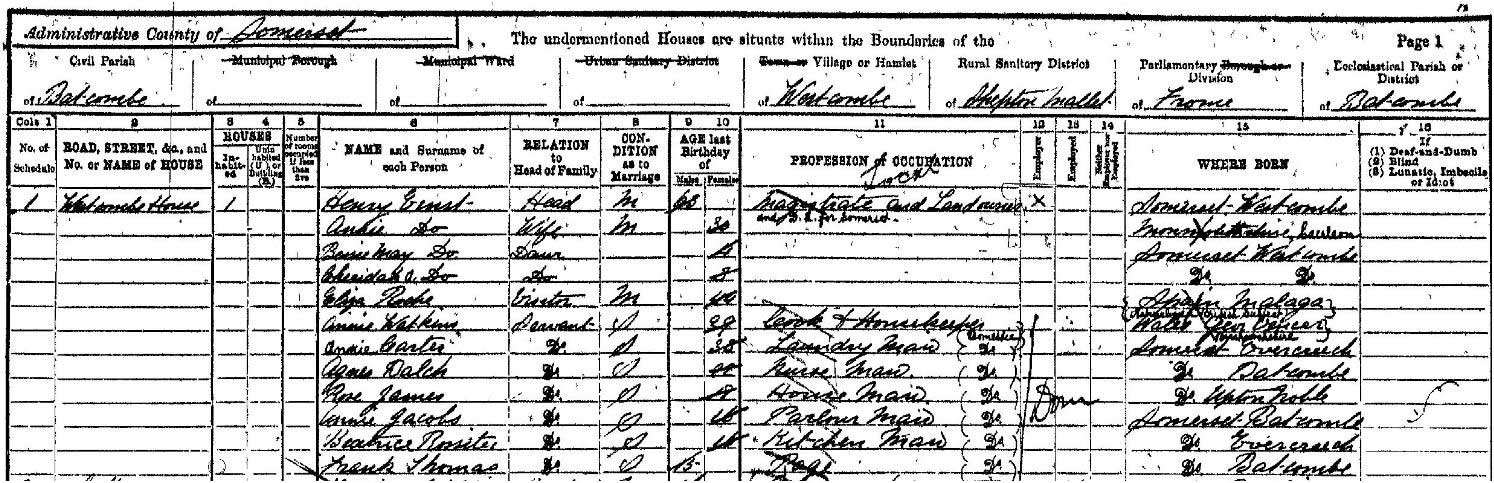 Administrative County of Somerset
The undermentioned Houses are situate within the Boundaries of the
Page 1
Civil Parish
of Batcombe
Municipal Borough
of
Municipal Ward
of
Urban Sanitary District
of
Town or Village or Hamlet
of Westcombe
Rural Sanitary District
of Shepton Mallet
Parliamentary Borough or Division
of Frome
Ecclesiastical Parish or District
of Batcombe
Cols 1 2 3 4 5 6 7 8 9 10 11 12 13 14 15 16
No. of Schedule
ROAD, STREET, &c., and No. or NAME of HOUSE
HOUSES
Inhabited
Uninhabited (U.) or Building (B.)
Number of rooms occupied if less than five
NAME and Surname of each Person
RELATION to Head of Family
CONDITION as to Marriage
AGE last Birthday of
Males Females
PROFESSION or OCCUPATION
Employer
Employed
Neither Employer nor Employed
WHERE BORN
If (1) Deaf-and-Dumb (2) Blind (3) Lunatic, Imbecile or Idiot
1 Westcombe House 1 Henry Ernst Head M Magistrate and Land owner X Somerset Westcombe
and D.L. for Somerset
Annie Do Wife M 30 Monmouthshire
May Do Daur Somerset Westcombe
Do Do 8 Do Do
Eliza Roche Visitor M Spain Malaga
Annie Watkins Servant S 29 Cook & Housekeeper Wales
Annie Carter Do S 38 Laundry Maid (Domestic Do) Somerset Evercreech
Agnes Do S Nurse Maid (Do) Do Batcombe
Rose James Do S 18 House Maid (Do) Do Upton Noble
Annie Jacobs Do S 18 Parlour Maid (Do) Dom Somerset Batcombe
Beatrice Rossiter Do S 18 Kitchen Maid (Do) Do Evercreech
Frank Thomas Do S 15 Page (Do) Do Batcombe